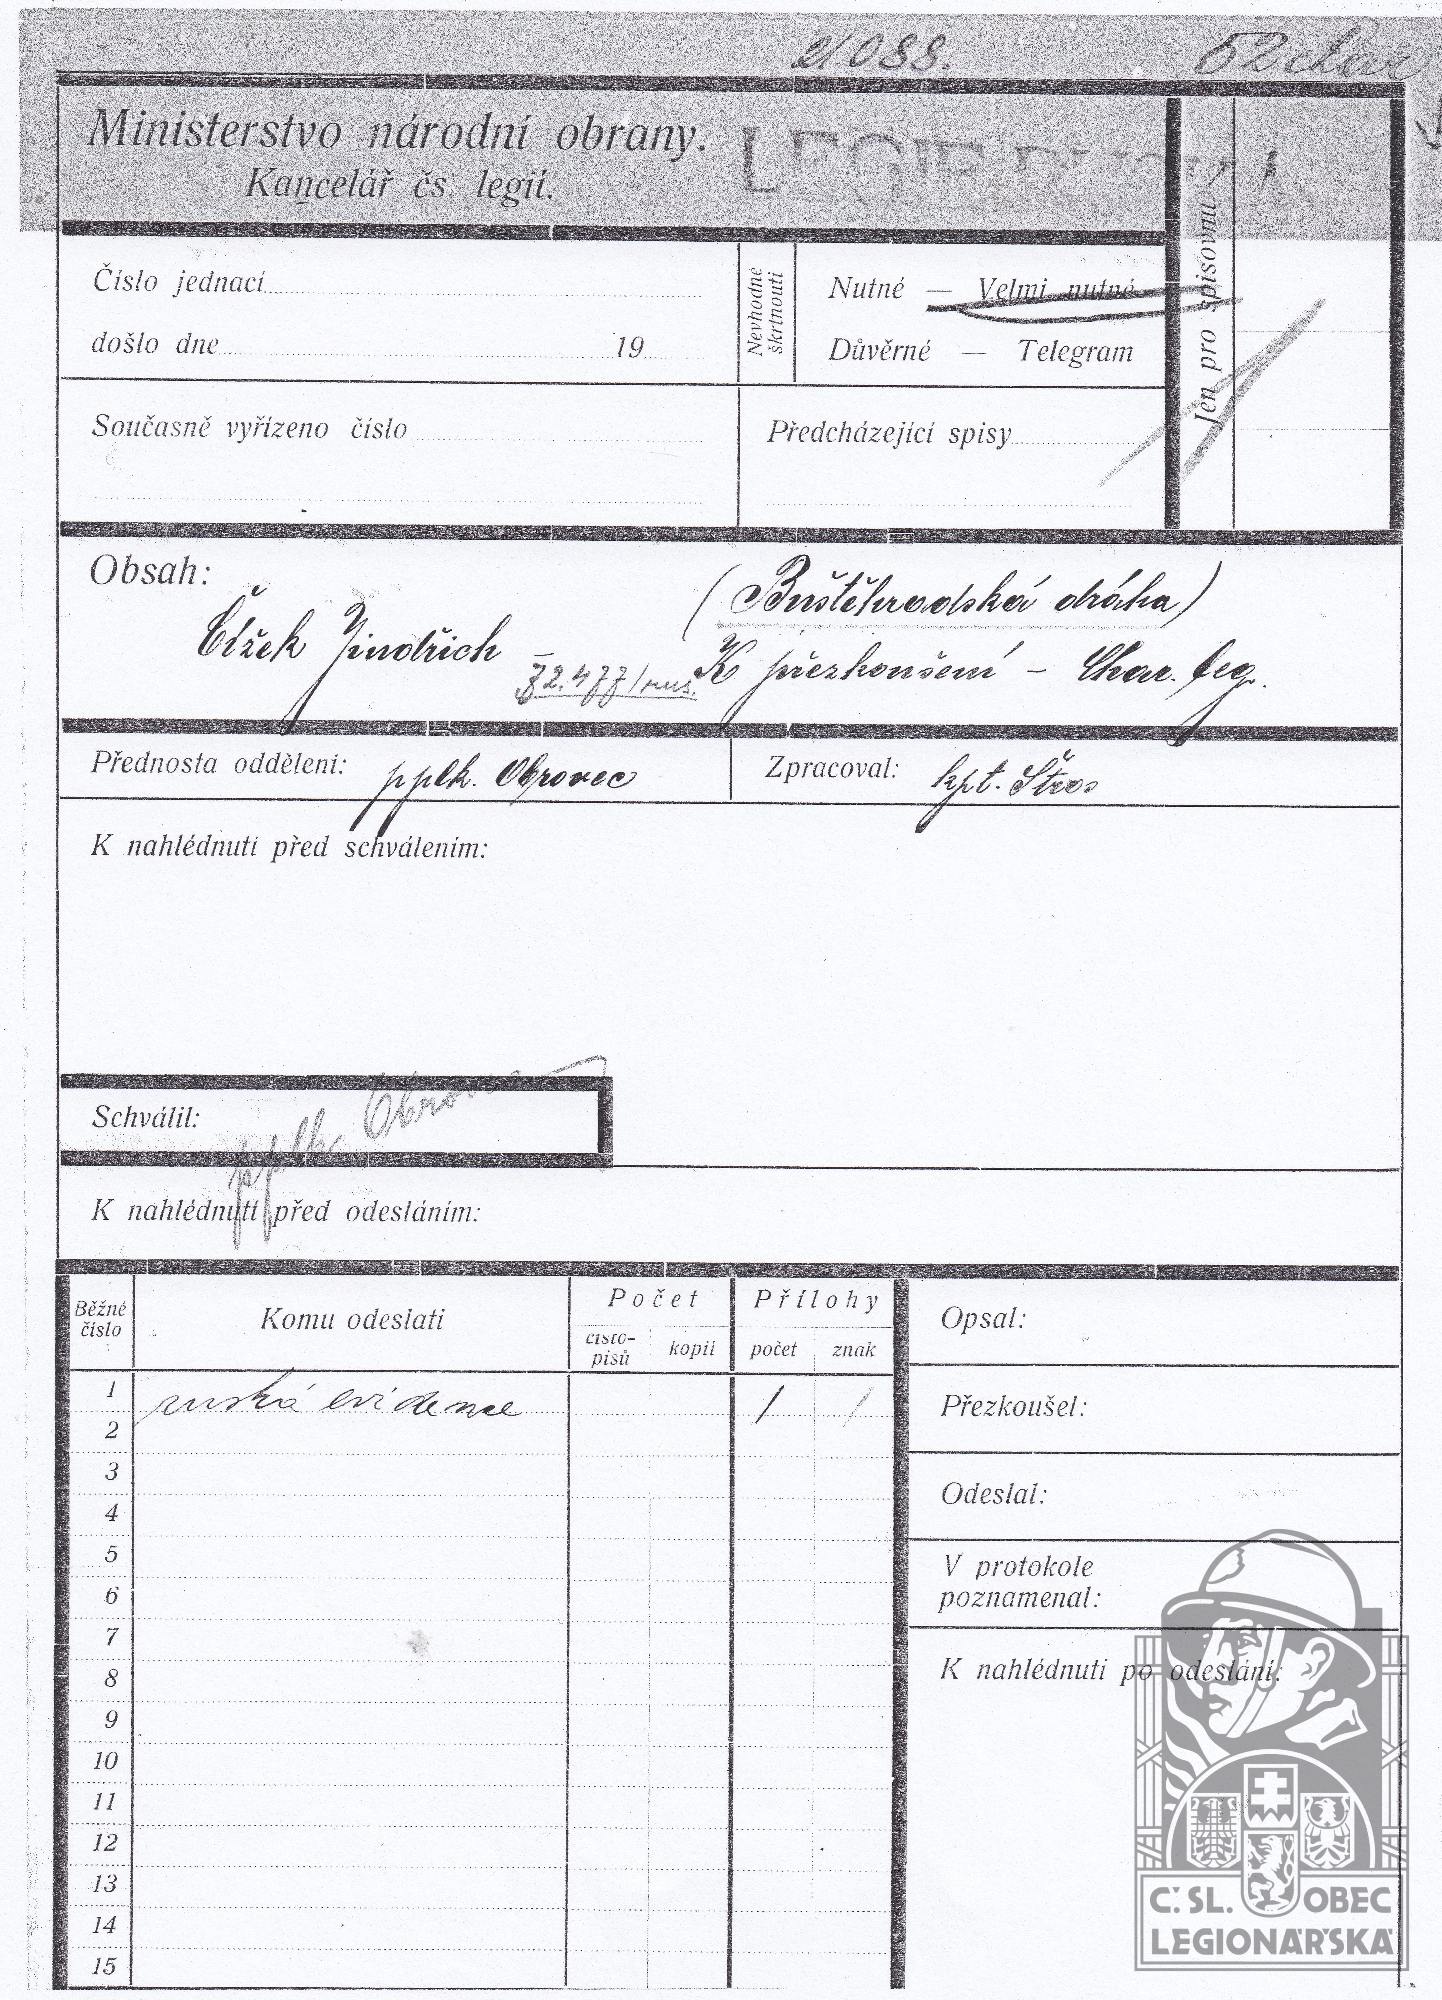 21088.
52
Ministerstvo národní obrany.
Kancelář čs. legií.
LEGIE
Číslo jednací
došlo dne 19
Nevhodné
škrtnouti
Nutné — Velmi nutné
Důvěrné — Telegram
Jen pro spisovnu
Současně vyřízeno číslo
Předcházející spisy
Obsah:
(Buštěhradská dráha)
Čížek Jindřich – K přezkoušení – Char. leg.
Přednosta oddělení: pplk. Obrovec
Zpracoval: kpt. Štros
K nahlédnutí před schválením:
Schválil: pplk. Obrovec
K nahlédnutí před odesláním:
Běžné
číslo
Komu odeslati
Počet
čisto-
pisů
kopií
Přílohy
počet
znak
1 ruská evidence 1 1
2
3
4
5
6
7
8
9
10
11
12
13
14
15
Opsal:
Přezkoušel:
Odeslal:
V protokole
poznamenal:
K nahlédnutí po odeslání:
Č. SL. OBEC
LEGIONÁŘSKÁ